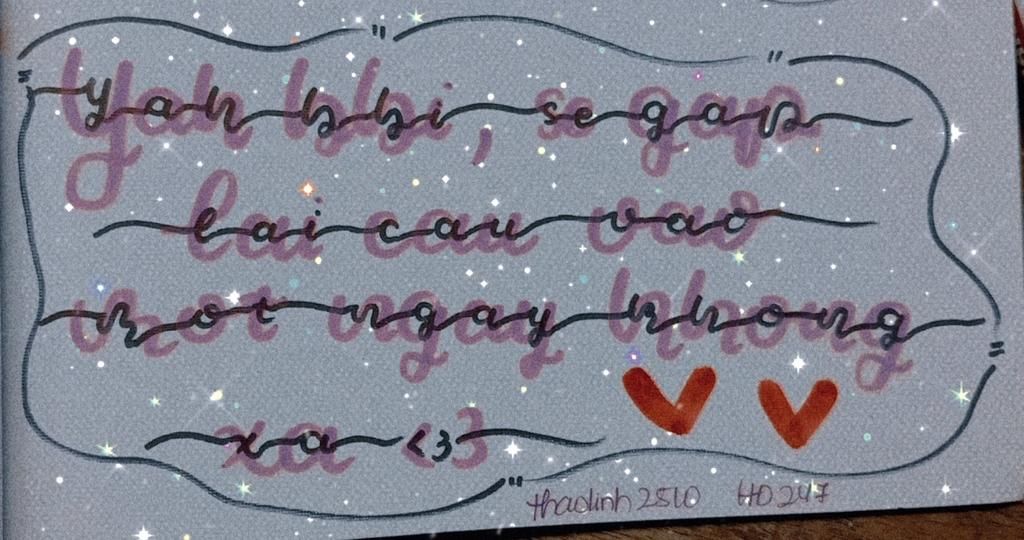 Yah bbi, se gap
lai cau vao
mot ngay khong
xa <3
thaolinh2510 HD247